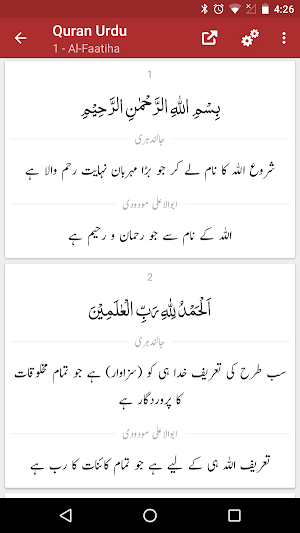 4:26
Quran Urdu
1 - Al-Faatiha
1
بِسْمِ اللهِ الرَّحْمٰنِ الرَّحِيْمِ
جالندہری
شروع الله کا نام لے کر جو بڑا مہربان نہایت رحم والا ہے
ابوالاعلی مودودی
الله کے نام سے جو رحمان و رحیم ہے
2
اَلْحَمْدُ لِلّٰهِ رَبِّ الْعٰلَمِيْنَ
جالندہری
سب طرح کی تعریف خدا ہی کو (سزاوار) ہے جو تمام مخلوقات
کا پروردگار ہے
ابوالاعلی مودودی
تعریف الله ہی کے لیے ہے جو تمام کائنات کا رب ہے